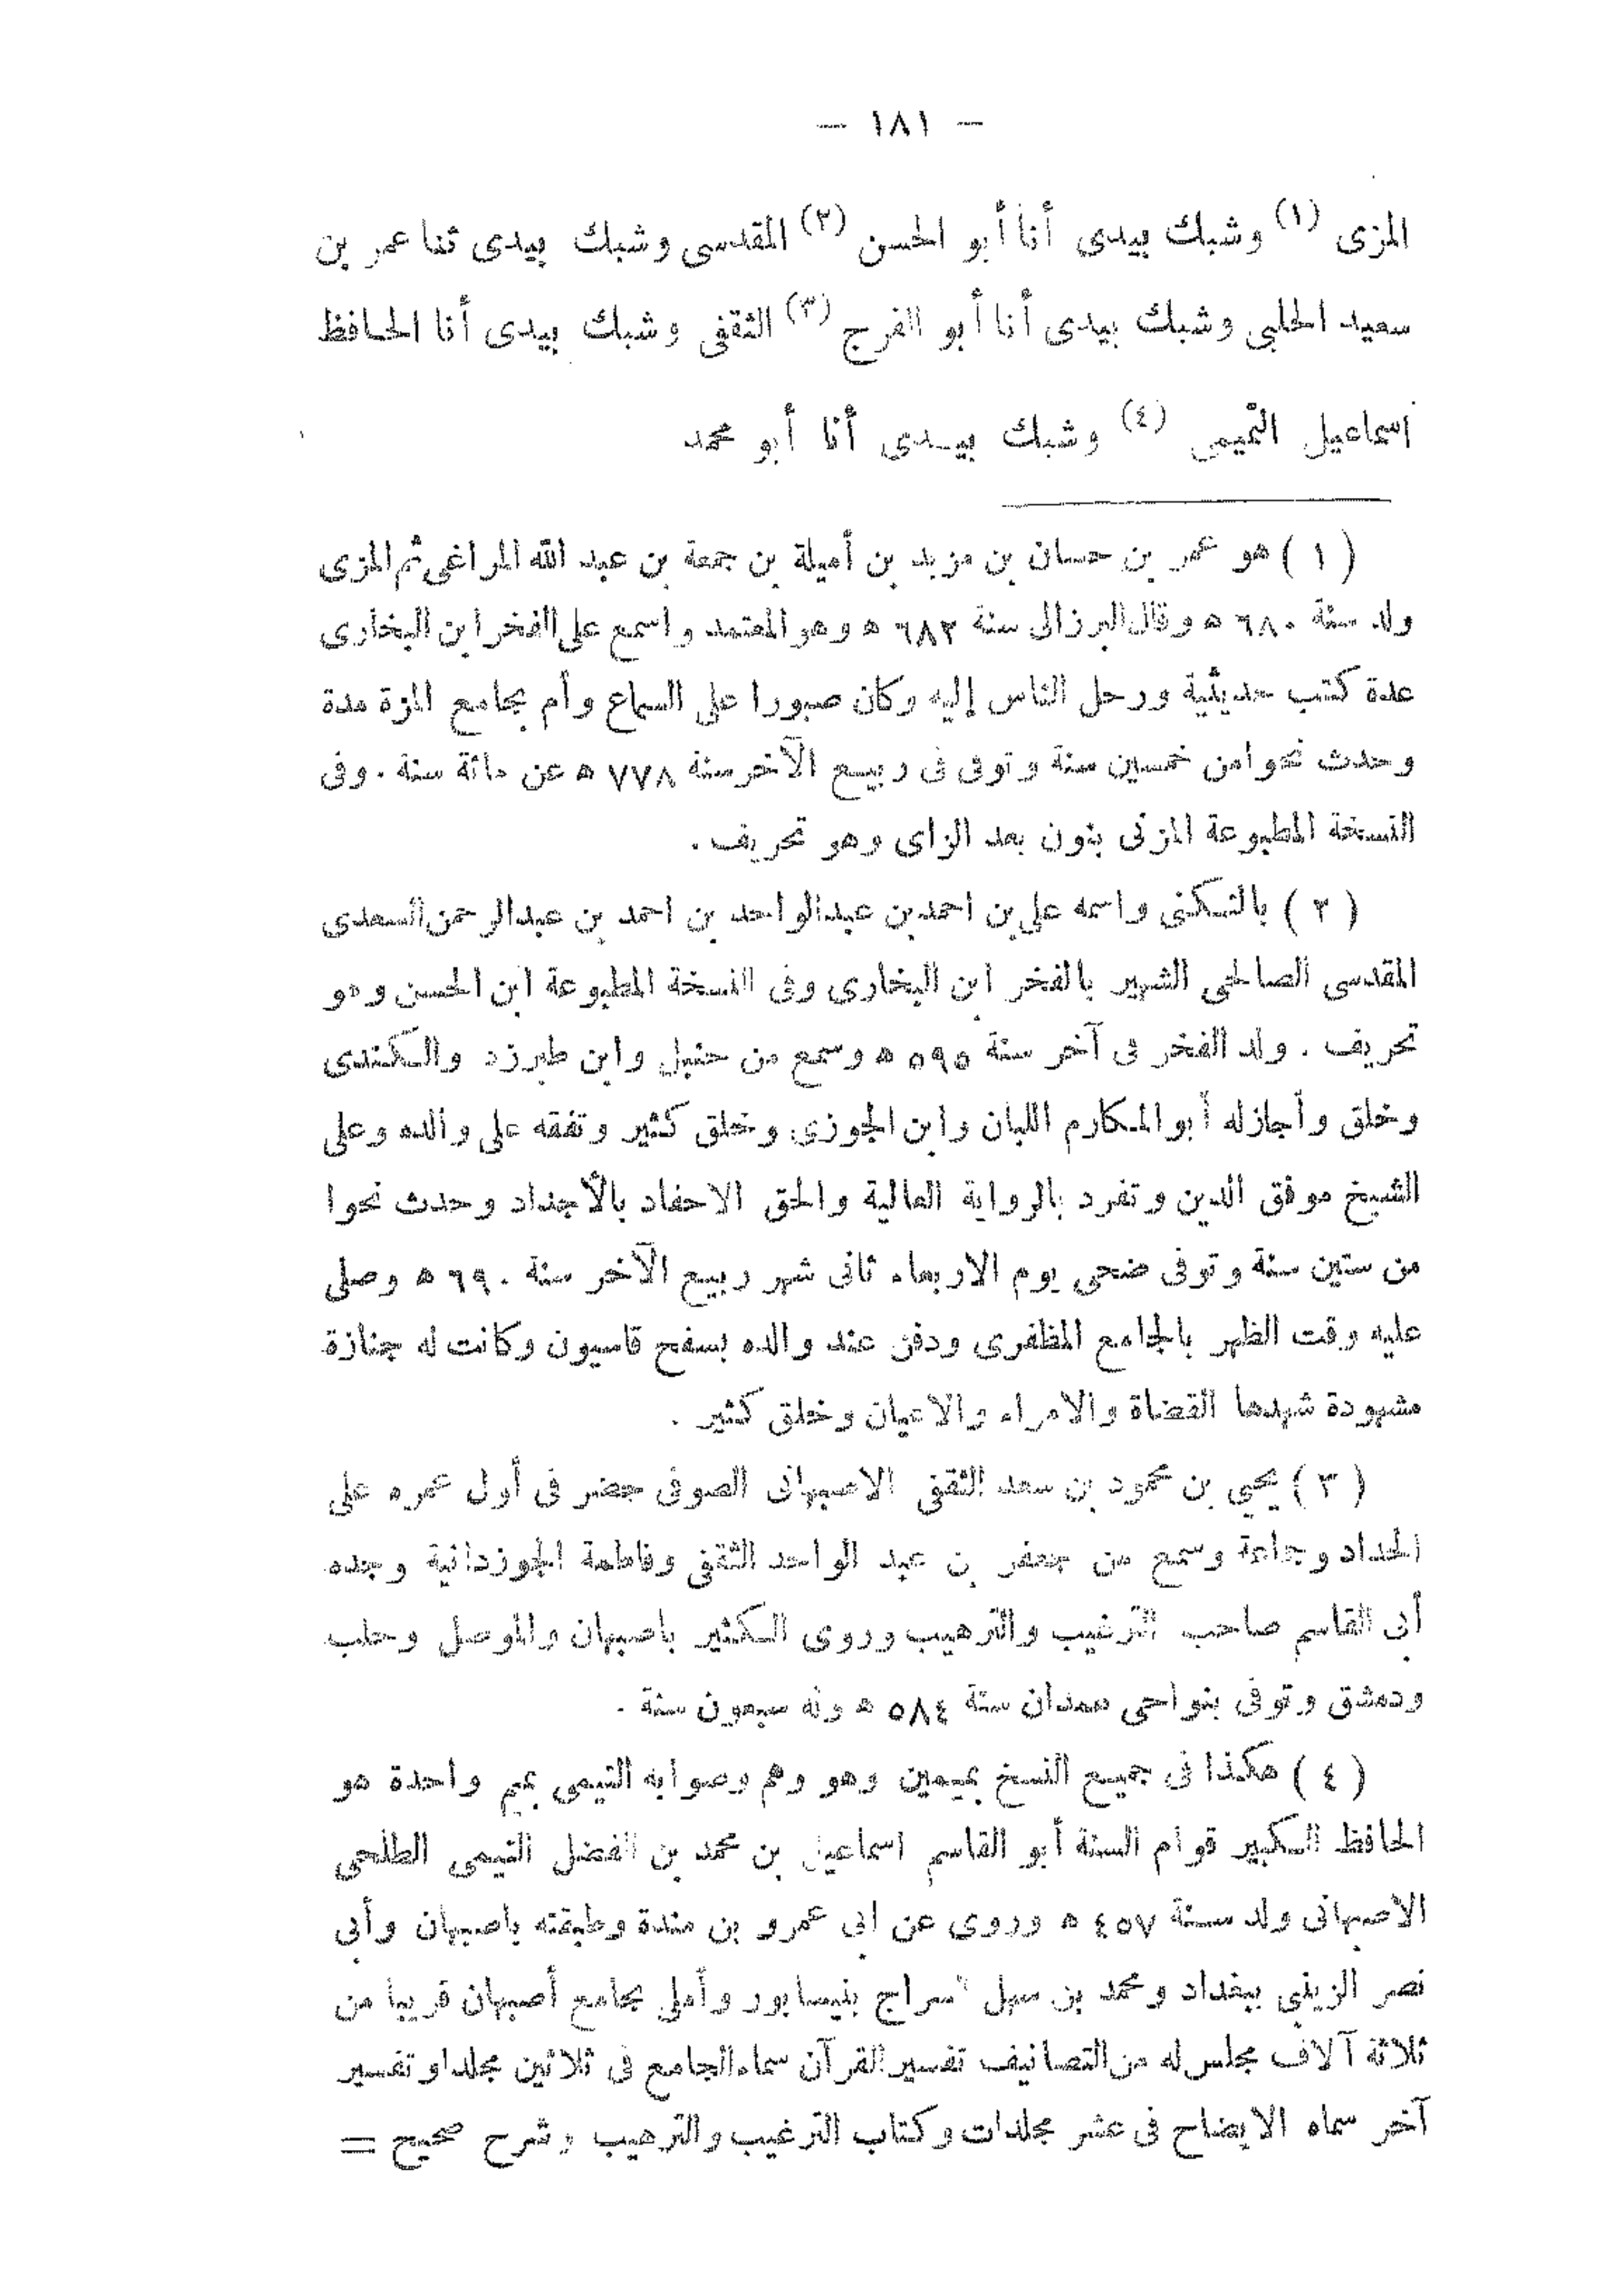 — ١٨١ —
المزى (١) وشبك بيدى أنا أبو الحسن (٢) المقدسى وشبك بيدى ثنا عمر بن
سعيد الحلبى وشبك بيدى أنا أبو الفرج (٣) الثقفى وشبك بيدى أنا الحافظ
اسماعيل التميمى (٤) وشبك بيدى أنا أبو محمد
( ١ ) هو عمر بن حسان بن مزيد بن أميلة بن جمعة بن عبد الله المراغى ثم المزى
ولد سنة ٦٨٠ ه وقال البرزالى سنة ٦٨٢ ه وهو المعتمد واسمع على الفخر ابن البخارى
عدة كتب حديثية ورحل الناس إليه وكان صبورا على السماع وأم بجامع المزة مدة
وحدث نحوا من خمسين سنة وتوفى فى ربيع الآخر سنة ٧٧٨ ه عن مائة سنة . وفى
النسخة المطبوعة المزنى بنون بعد الزاى وهو تحريف .
( ٢ ) بالتكنى واسمه على بن احمد بن عبد الواحد بن احمد بن عبد الرحمن السعدى
المقدسى الصالحى الشهير بالفخر ابن البخارى وفى النسخة المطبوعة ابن الحسن وهو
تحريف . ولد الفخر فى آخر سنة ٥٩٥ ه وسمع من حنبل وابن طبرزد والكندى
وخلق وأجازله أبو المكارم اللبان وابن الجوزى وخلق كثير وتفقه على والده وعلى
الشيخ موفق الدين وتفرد بالرواية العالية والحق الاحفاد بالأجداد وحدث نحوا
من ستين سنة وتوفى ضحى يوم الاربعاء ثانى شهر ربيع الآخر سنة ٦٩٠ ه وصلى
عليه وقت الظهر بالجامع المظفرى ودفن عند والده بسفح قاسيون وكانت له جنازة
مشهودة شهدها القضاة والامراء والاعيان وخلق كثير .
( ٣ ) يحيى بن محمود بن سعد الثقفى الاصبهانى الصوفى حضر فى أول عمره على
الحداد وجماعة وسمع من جعفر بن عبد الواحد الثقفى وفاطمة الجوزدانية وجده
أبى القاسم صاحب الترغيب والترهيب وروى الكثير باصبهان والموصل وحلب
ودمشق وتوفى بنواحى همدان سنة ٥٨٤ ه وله سبعون سنة .
( ٤ ) هكذا فى جميع النسخ بميمين وهو وهم وصوابه التيمى بميم واحدة هو
الحافظ الكبير قوام السنة أبو القاسم اسماعيل بن محمد بن الفضل التيمى الطلحى
الاصبهانى ولد سنة ٤٥٧ ه وروى عن ابى عمرو بن مندة وطبقته باصبهان وأبى
نصر الزينبى ببغداد ومحمد بن سهل السراج بنيسابور وأملى بجامع أصبهان قريبا من
ثلاثة آلاف مجلس له من التصانيف تفسير القرآن سماه الجامع فى ثلاثين مجلدا وتفسير
آخر سماه الايضاح فى عشر مجلدات وكتاب الترغيب والترهيب وشرح صحيح =